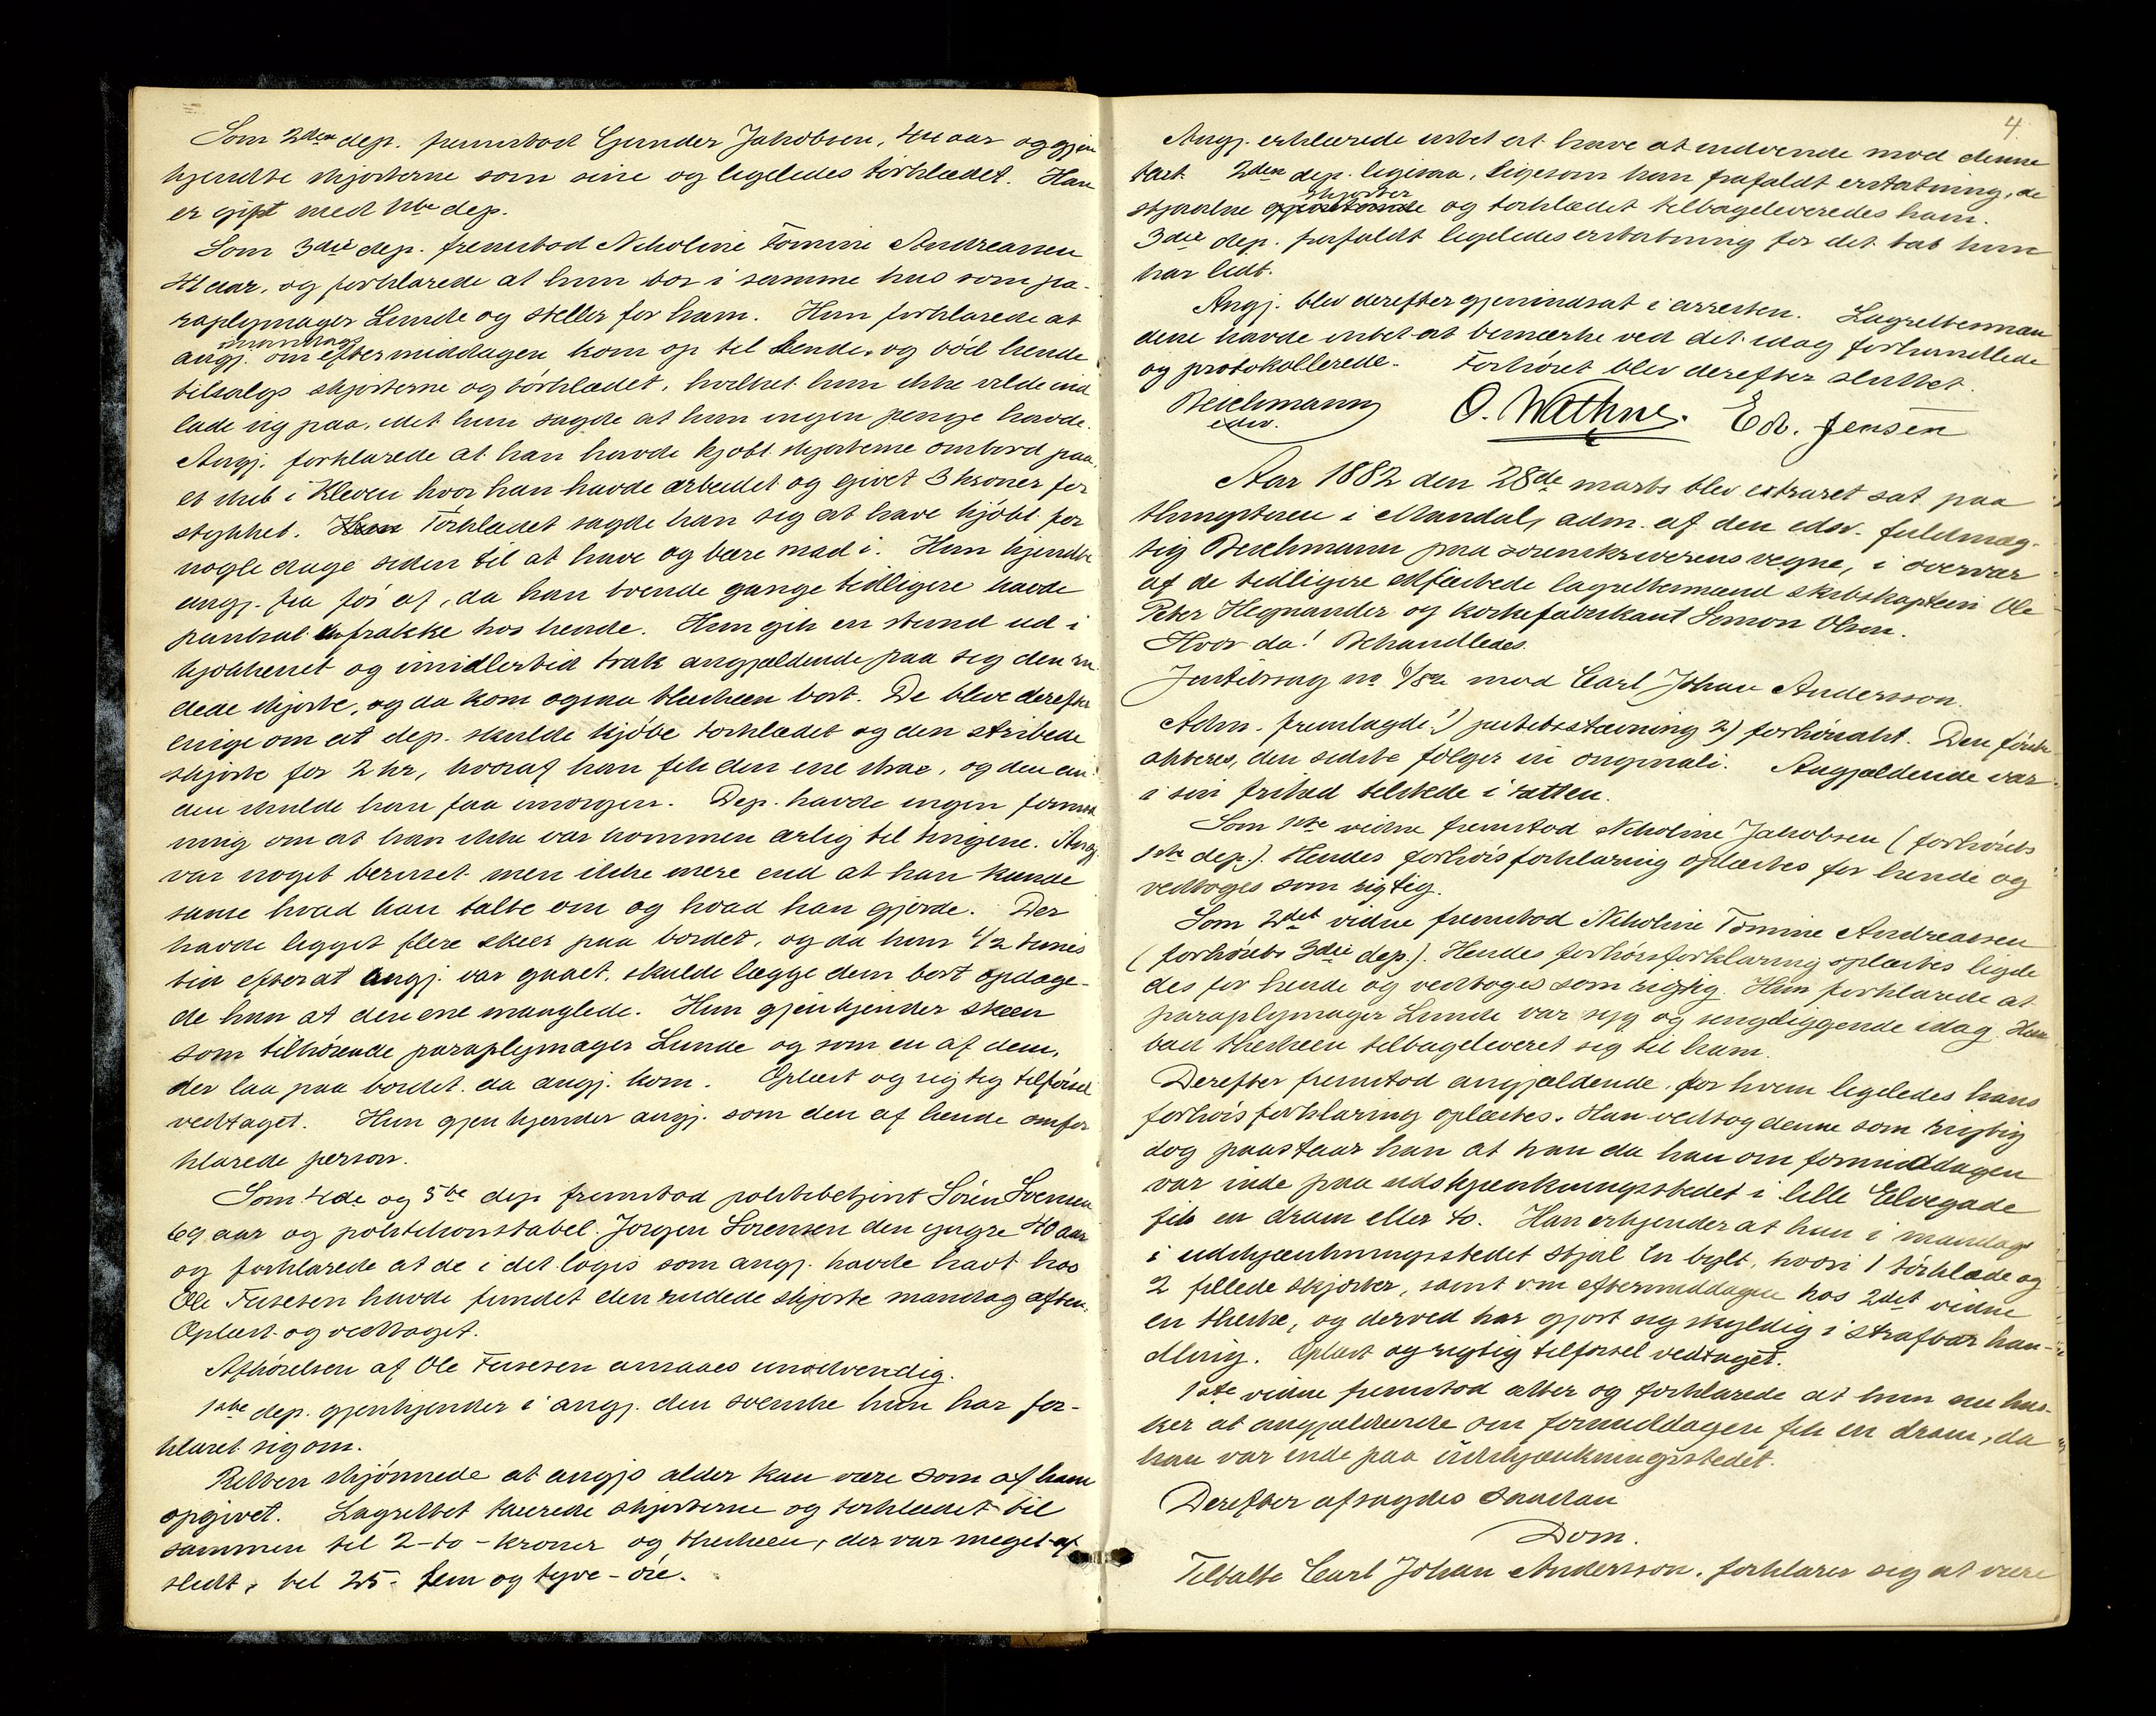 Som 2den dep. fremstod Gunder Jakobsen, 44 aar og gjen
kjendte skjorterne som sine og ligeledes törklædet. Han
er gift med 1ste dep.
Som 3die dep. fremstod Nicholine Tomine Andreasen
41 aar, og forklarede at hun bor i samme hus som pa-
raplymager Lunde og steller for ham. Hun forklarede at
mandag
angj. om eftermiddagen kom op til hende og böd hende
tilsalgs skjorterne og törklædet, hvilket hun ikke vilde ind
lade sig paa, idet hun sagde at hun ingen penge havde.
Angj. forklarede at han havde kjöbt skjorterne ombord paa
et skib i Kleven hvor han havde arbeidet og givet 3 kroner for
stykket. Han Törklædet sagde han sig at have kjöbt for
nogle dage siden til at have og bære mad i. Hun kjendte
angj. fra för af, da han tvende gange tidligere havde
pantsat en frakke hos hende. Hun gik en stund ud i
kjökkenet og imidlertid trak angjældende paa sig den ru
dede skjorte, og da kom ogsaa theskeen bort. De bleve derefter
enige om at dep. skulde kjöbe törklædet og den stribede
skjorte for 2 kr, hvoraf han fik den ene strax, og den an
den skulde han faa imorgen. Dep. havde ingen formod
ning om at han ikke var kommen ærlig til tingene. Angj.
var noget beruset men ikke mere end at han kunde
sanse hvad han talte om og hvad han gjorde. Der
havde ligget flere skeer paa bordet, og da hun 1/2 times
tid efterat angj. var gaaet, skulde lægge dem bort opdage-
de hun at den ene manglede. Hun gjenkjender skeen
som tilhörende paraplymager Lunde og som en af dem,
der laa paa bordet da angj. kom. Oplæst og rigtig tilförsel
vedtaget. Hun gjenkjender angj. som den af hende omfor
klarede person.
Som 4de og 5te dep fremstod politibetjent Sören Svensen
69 aar og politikonstabel Jörgen Sörensen den yngre 40 aar
og forklarede at de i det logis som angj. havde havt hos
Ole Tusesen havde fundet den rudede skjorte mandag aften.
Oplæst og vedtaget.
Afhörelsen af Ole Tusesen ansaaes unödvendig.
1ste dep. gjenkjender i angj. den svenske hun har for-
klaret sig om.
Retten skjönnede at angjs alder kan være som af ham
opgivet. Lagrettet taxerede skjorterne og törklædet til
sammen til 2 - to - kroner og theskeen, der var meget af
slidt, til 25 - fem og tyve - öre.
4.
Angj. erklærede intet at have at indvende mod denne
taxt. 2den dep. ligesaa, ligesom han frafaldt erstatning, de
skjorter
stjaalne og törklædet tilbageleveredes ham.
3die dep. frafaldt ligeledes erstatning for det tab hun
har lidt.
Angj. blev derefter gjenindsat i arresten. Lagrettesmæn
dene havde intet at bemærke ved det idag forhandlede
og protokollerede. Forhöret blev derefter sluttet.
Beichmann
edsv.
O. Wathne. Edv. Jensen
Aar 1882 den 28de marts blev extraret sat paa
thingstuen i Mandal, adm. af den edsv. fuldmæg-
tig Beichmann paa sorenskriverens vegne, i overvær
af de tidligere edfæstede lagrettesmænd skibskaptein Ole
Peter Hegnander og korkefabrikant Simon Olsen.
Hvor da! Behandledes.
Justitssag no 6/82 mod Carl Johan Andersson.
Adm. fremlagde 1) justitsstævning 2) forhörsakt. Den förste
akteres, den sidste fölger in originali. Angjældende var
i sin frihed tilstede i retten.
Som 1ste vidne fremstod Nicholine Jakobsen (forhörets
1ste dep.). Hendes forhörsforklaring oplæstes for hende og
vedtoges som rigtig.
Som 2det vidne fremstod Nicholine Tomine Andreasen
(forhörets 3die dep.). Hendes forhörsforklaring oplæstes ligele
des for hende og vedtoges som rigtig. Hun forklarede at
paraplymager Lunde var syg og sengeliggende idag. Han
bad theskeen tilbageleveret sig til ham.
Derefter fremstod angjældende, for hvem ligeledes hans
forhörsforklaring oplæstes. Han vedtog denne som rigtig
dog paastaar han at han da han om formiddagen
var inde paa udskjænkningsstedet i lille Elvegade
fik en dram eller to. Han erkjender at han i mandags
i udskjænkningsstedet stjal en bylt, hvori 1 törklæde og
2 fillede skjorter, samt om eftermiddagen hos 2det vidne
en theske, og derved har gjort sig skyldig i strafbar han-
dling. Oplæst og rigtig tilförsel vedtaget.
1ste vidne fremstod atter og forklarede at hun nu hus-
ker at angjældende om formiddagen fik en dram, da
han var inde paa udskjænkningsstedet.
Derefter afsagdes saadan
Dom.
Tiltalte Carl Johan Andersson, forklarer sig at være